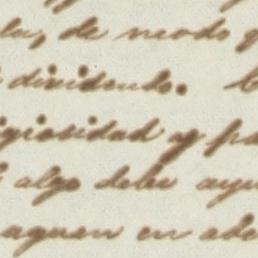 la, de modo q
dividendo.
igiosidad y pa
algo debe ayu
aguen en ade